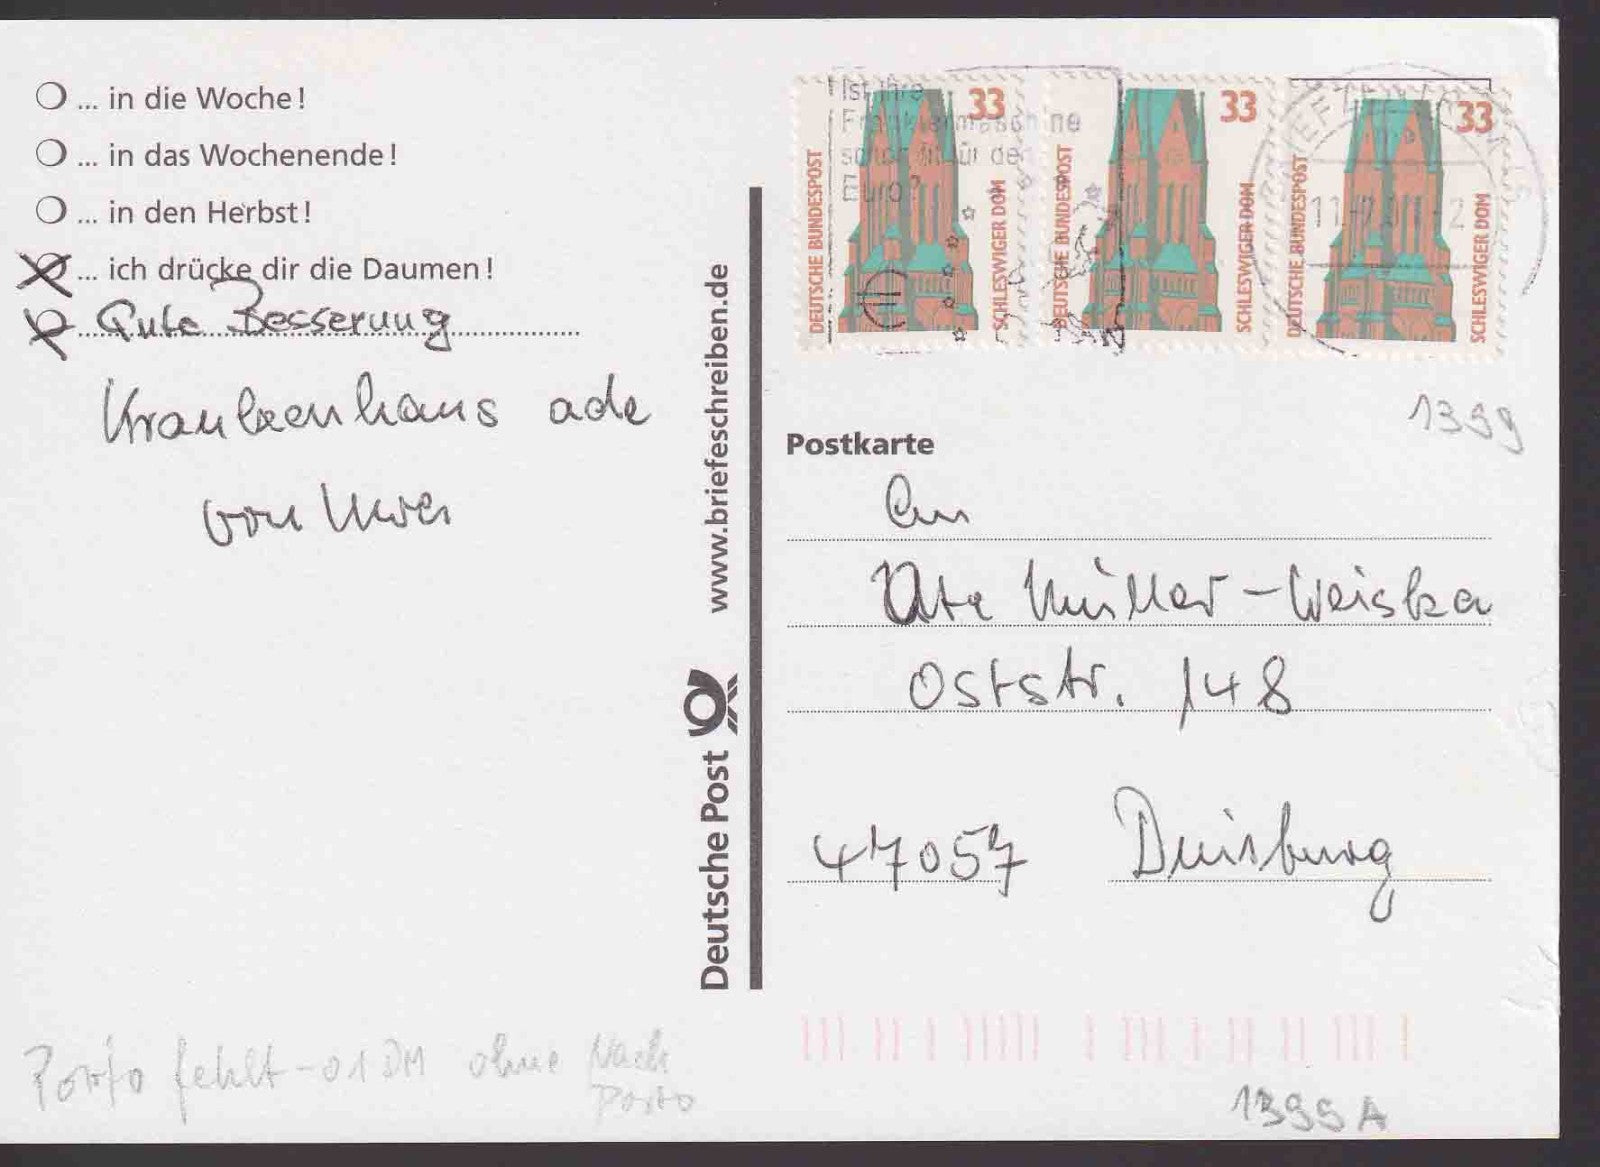 ... in die Woche!
... in das Wochenende!
... in den Herbst!
... ich drücke dir die Daumen!
Gute Besserung
Krankenhaus ade
von Uwe
www.briefeschreiben.de
Deutsche Post
33
DEUTSCHE BUNDESPOST
SCHLESWIGER DOM
33
DEUTSCHE BUNDESPOST
SCHLESWIGER DOM
33
DEUTSCHE BUNDESPOST
SCHLESWIGER DOM
Ist Ihre
Frankiermaschine
schon fit für den
Euro?
1399
Postkarte
An
Ute Müller-Weiska
Oststr. 148
47057 Duisburg
Porto fehlt -01 DM ohne Nach
Porto
1399 A